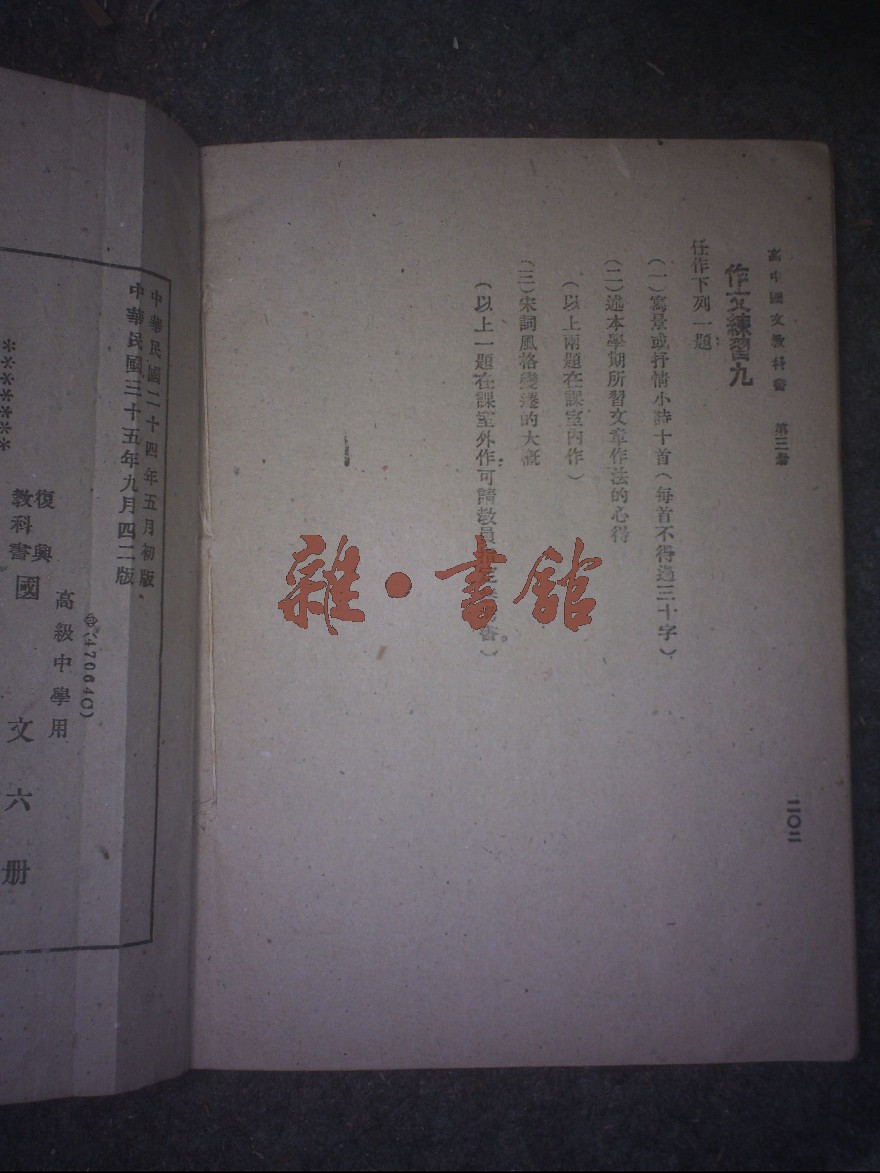 高中國文教科書　第三冊
作文練習九
任作下列一題
(一)寫景或抒情小詩十首(每首不得過三十字)
(二)述本學期所習文章作法的心得
(以上兩題在課室內作)
(三)宋詞風格變遷的大概
(以上一題在課室外作可請教員
書)
二〇二
雜·書館
中華民國二十四年五月初版
中華民國三十五年九月四二版
(47064C)
高級中學用
復興
教科書
國文六册
******